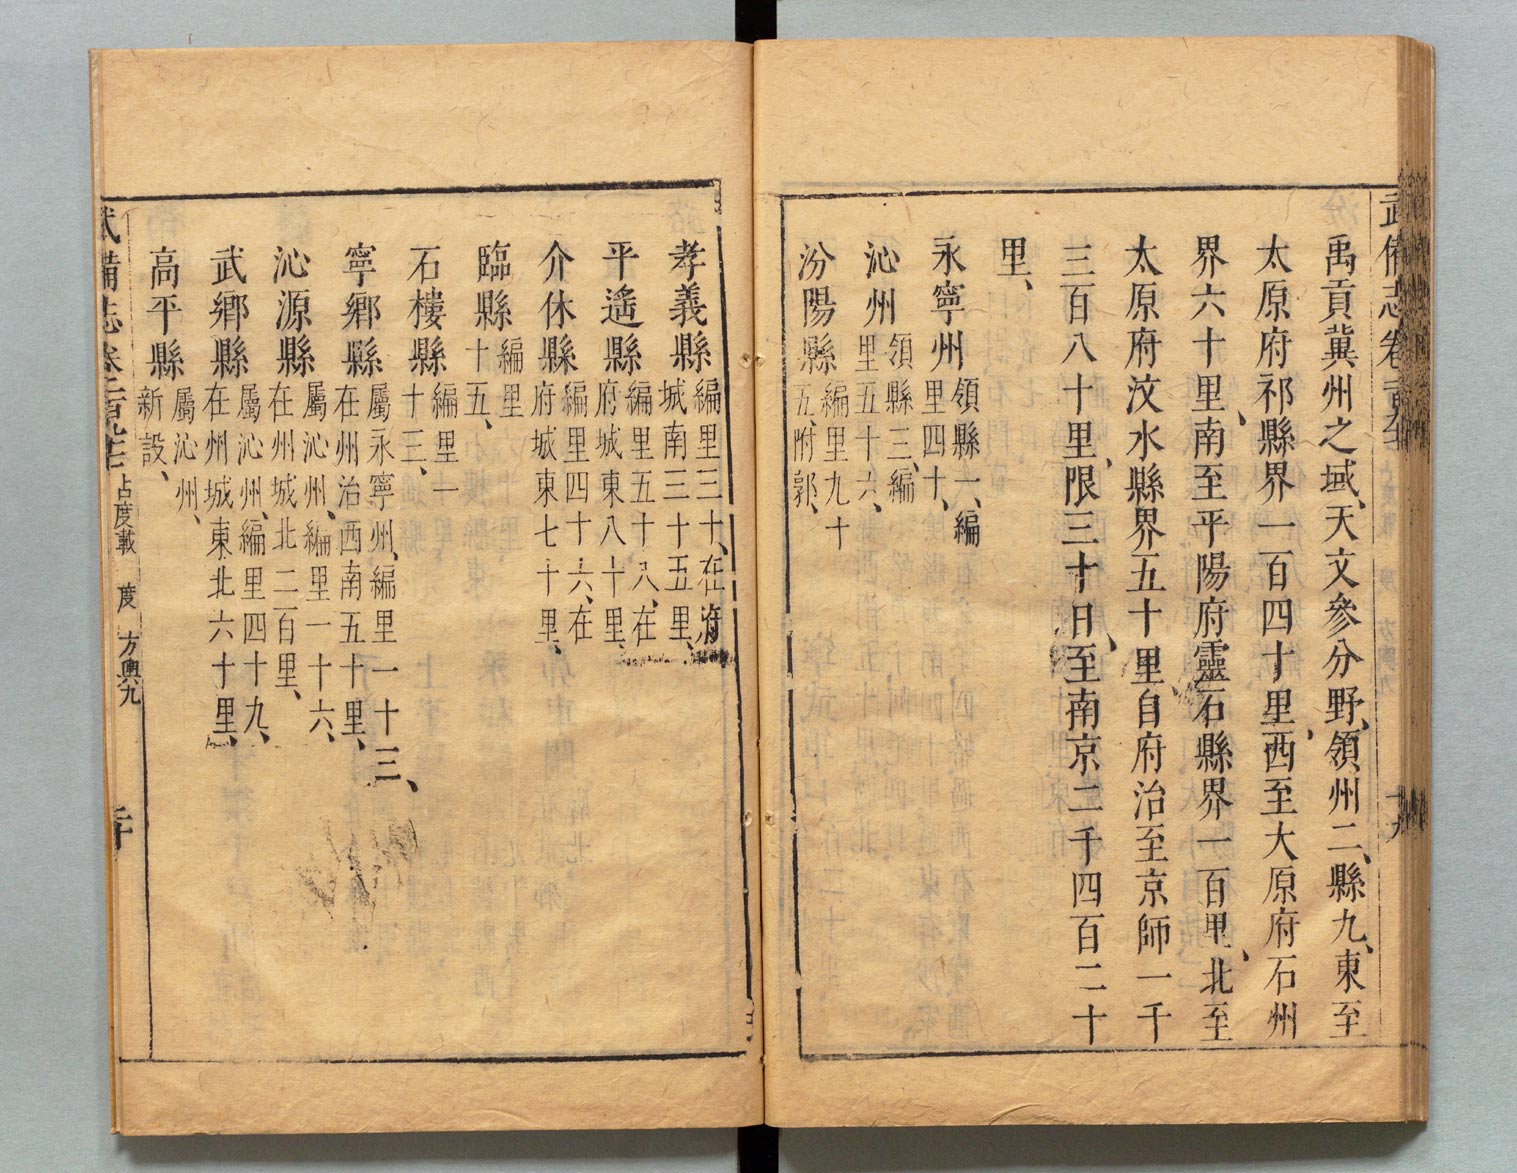 武備志卷
十九
禹貢冀州之域、天文參分野、領州二、縣九、東至
太原府祁縣界一百四十里、西至大原府石州
界六十里、南至平陽府靈石縣界一百里、北至
太原府汶水縣界五十里自府治至京師一千
三百八十里、限三十日、至南京二千四百二十
里、
永寧州領縣一、編里四十、
沁州領縣三、編里五十六、
汾陽縣編里九十五、附郭、
孝義縣編里三十、在府城南三十五里、
平遙縣編里五十八、在府城東八十里、
介休縣編里四十六、在府城東七十里、
臨縣編里十五、
石樓縣編里一十三、
寧鄉縣屬永寧州、編里一十三、在州治西南五十里、
沁源縣屬沁州、編里一十六、在州城北二百里、
武鄉縣屬沁州、編里四十九、在州城東北六十里、
高平縣屬沁州、新設、
武備志卷 占度載 度 方輿九 二十